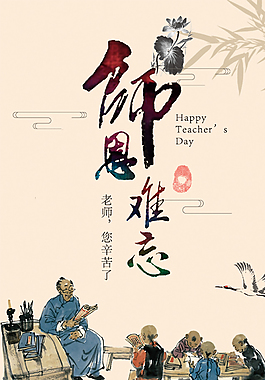 師恩难忘
Happy
Teacher's
Day
老师，您辛苦了